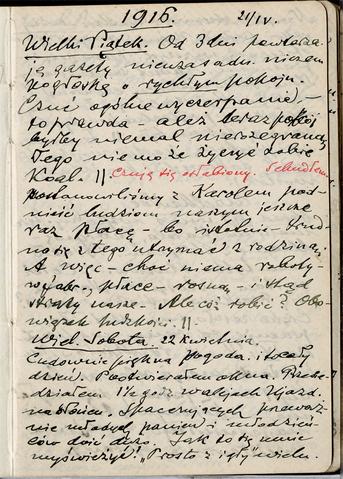 1916.
21/IV.
Wielki Piątek. Od 3 dni powtarza-
ją gazety nieuzasadn. niczem
pogłoskę o rychłym pokoju.
Czuć ogólne wyczerpanie –
to prawda – ależ teraz pokój
byłby niemal nierozegraną
Tego nie może życzyć sobie
Koal. || Czuję się osłabiony.
Postanowiliśmy z Karolem pod-
nieść ludziom naszym jeszcze
raz płacę – bo istotnie – trud-
no się z tego utrzymać z rodzinami.
A więc – choć niema roboty –
wyrabc., płace – rosną – i stąd
straty nasze. Ale cóż robić? Obo-
wiązek ludzkości. ||
Wiel. Sobota. 22 kwietnia.
Cudownie piękna pogoda i to cały
dzień. Pootwierałem okna. Prze-
działem 1½ godz w alejach Ujazd.
na słońcu. Spacerujących przeważ-
nie młodych panien i młodzień-
ców dość dużo. Jak to się umie
wyświeżyć! „Prosto z igły" wielu.